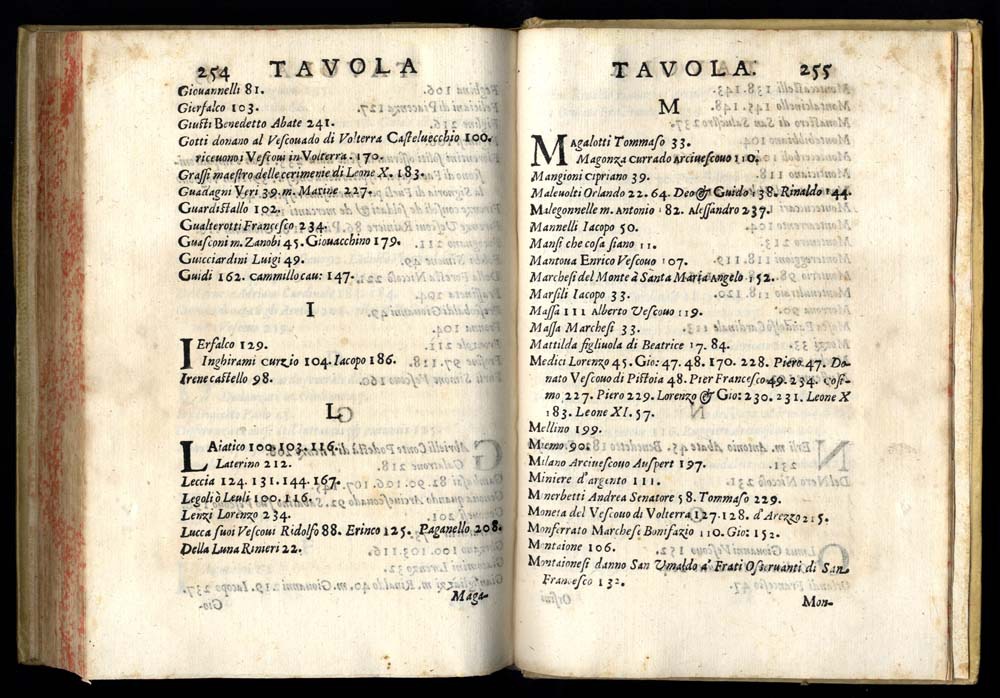 254 TAVOLA
Giouannelli 81.
Gierfalco 103.
Giusti Benedetto Abate 241.
Gotti donano al Vescouado di Volterra Casteluecchio 100.
riceuono i Vescoui in Volterra. 170.
Grassi maestro delle cerimenie di Leone X. 183.
Guadagni Veri 39. m. Matine 227.
Guardistallo 102.
Gualterotti Francesco 234.
Guasconi m. Zanobi 45. Giouacchino 179.
Guicciardini Luigi 49.
Guidi 162. Cammillo cau: 147.
I
IErfalco 129.
Inghirami Curzio 104. Iacopo 186.
Irene castello 98.
L
LAiatico 100. 103. 116.
Laterino 212.
Leccia 124. 131. 144. 167.
Legoli ò Leuli 100. 116.
Lenzi Lorenzo 234.
Lucca suoi Vescoui Ridolfo 88. Erinco 125. Paganello 208.
Della Luna Rinieri 22.
Maga-
TAVOLA. 255
M
MAgalotti Tommaso 33.
Magonza Currado Arciuescouo 110.
Mangioni Cipriano 39.
Maleuolti Orlando 22. 64. Deo & Guido 138. Rinaldo 144.
Malegonnelle m. Antonio 182. Alessandro 237.
Mannelli Iacopo 50.
Mansi che cosa siano 11.
Mantoua Enrico Vescouo 107.
Marchesi del Monte à Santa Maria Angelo 152.
Marsili Iacopo 33.
Massa 111 Alberto Vescouo 119.
Massa Marchesi 33.
Mattilda figliuola di Beatrice 17. 84.
Medici Lorenzo 45. Gio: 47. 48. 170. 228. Piero 47. Do-
nato Vescouo di Pistoia 48. Pier Francesco 49. 234. Cosi-
mo 227. Piero 229. Lorenzo & Gio: 230. 231. Leone X
183. Leone XI. 57.
Mellino 199.
Miemo 90.
Milano Arciuescouo Auspert 197.
Miniere d'argento 111.
Minerbetti Andrea Senatore 58. Tommaso 229.
Moneta del Vescouo di Volterra 127. 128. d'Arezzo 215.
Monferrato Marchese Bonifazio 110. Gio: 152.
Montaione 106.
Montaionesi danno San Viualdo a' Frati Osseruanti di San
Francesco 132.
Mon-